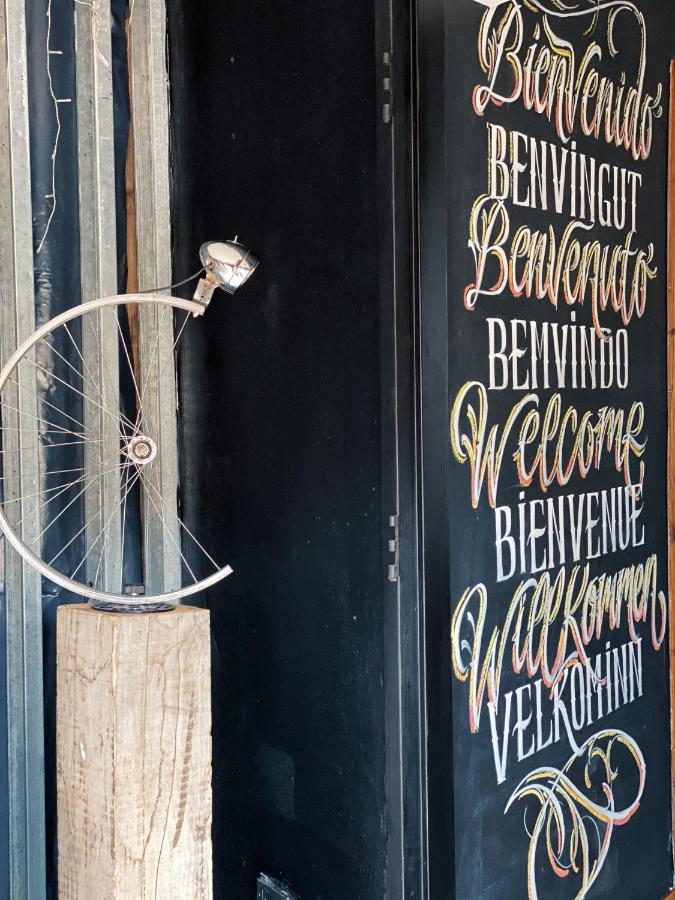 Benvenido
BENVINGUT
Benvenuto
BEMVINDO
Welcome
BIENVENUE
Willkommen
VELKOMINN